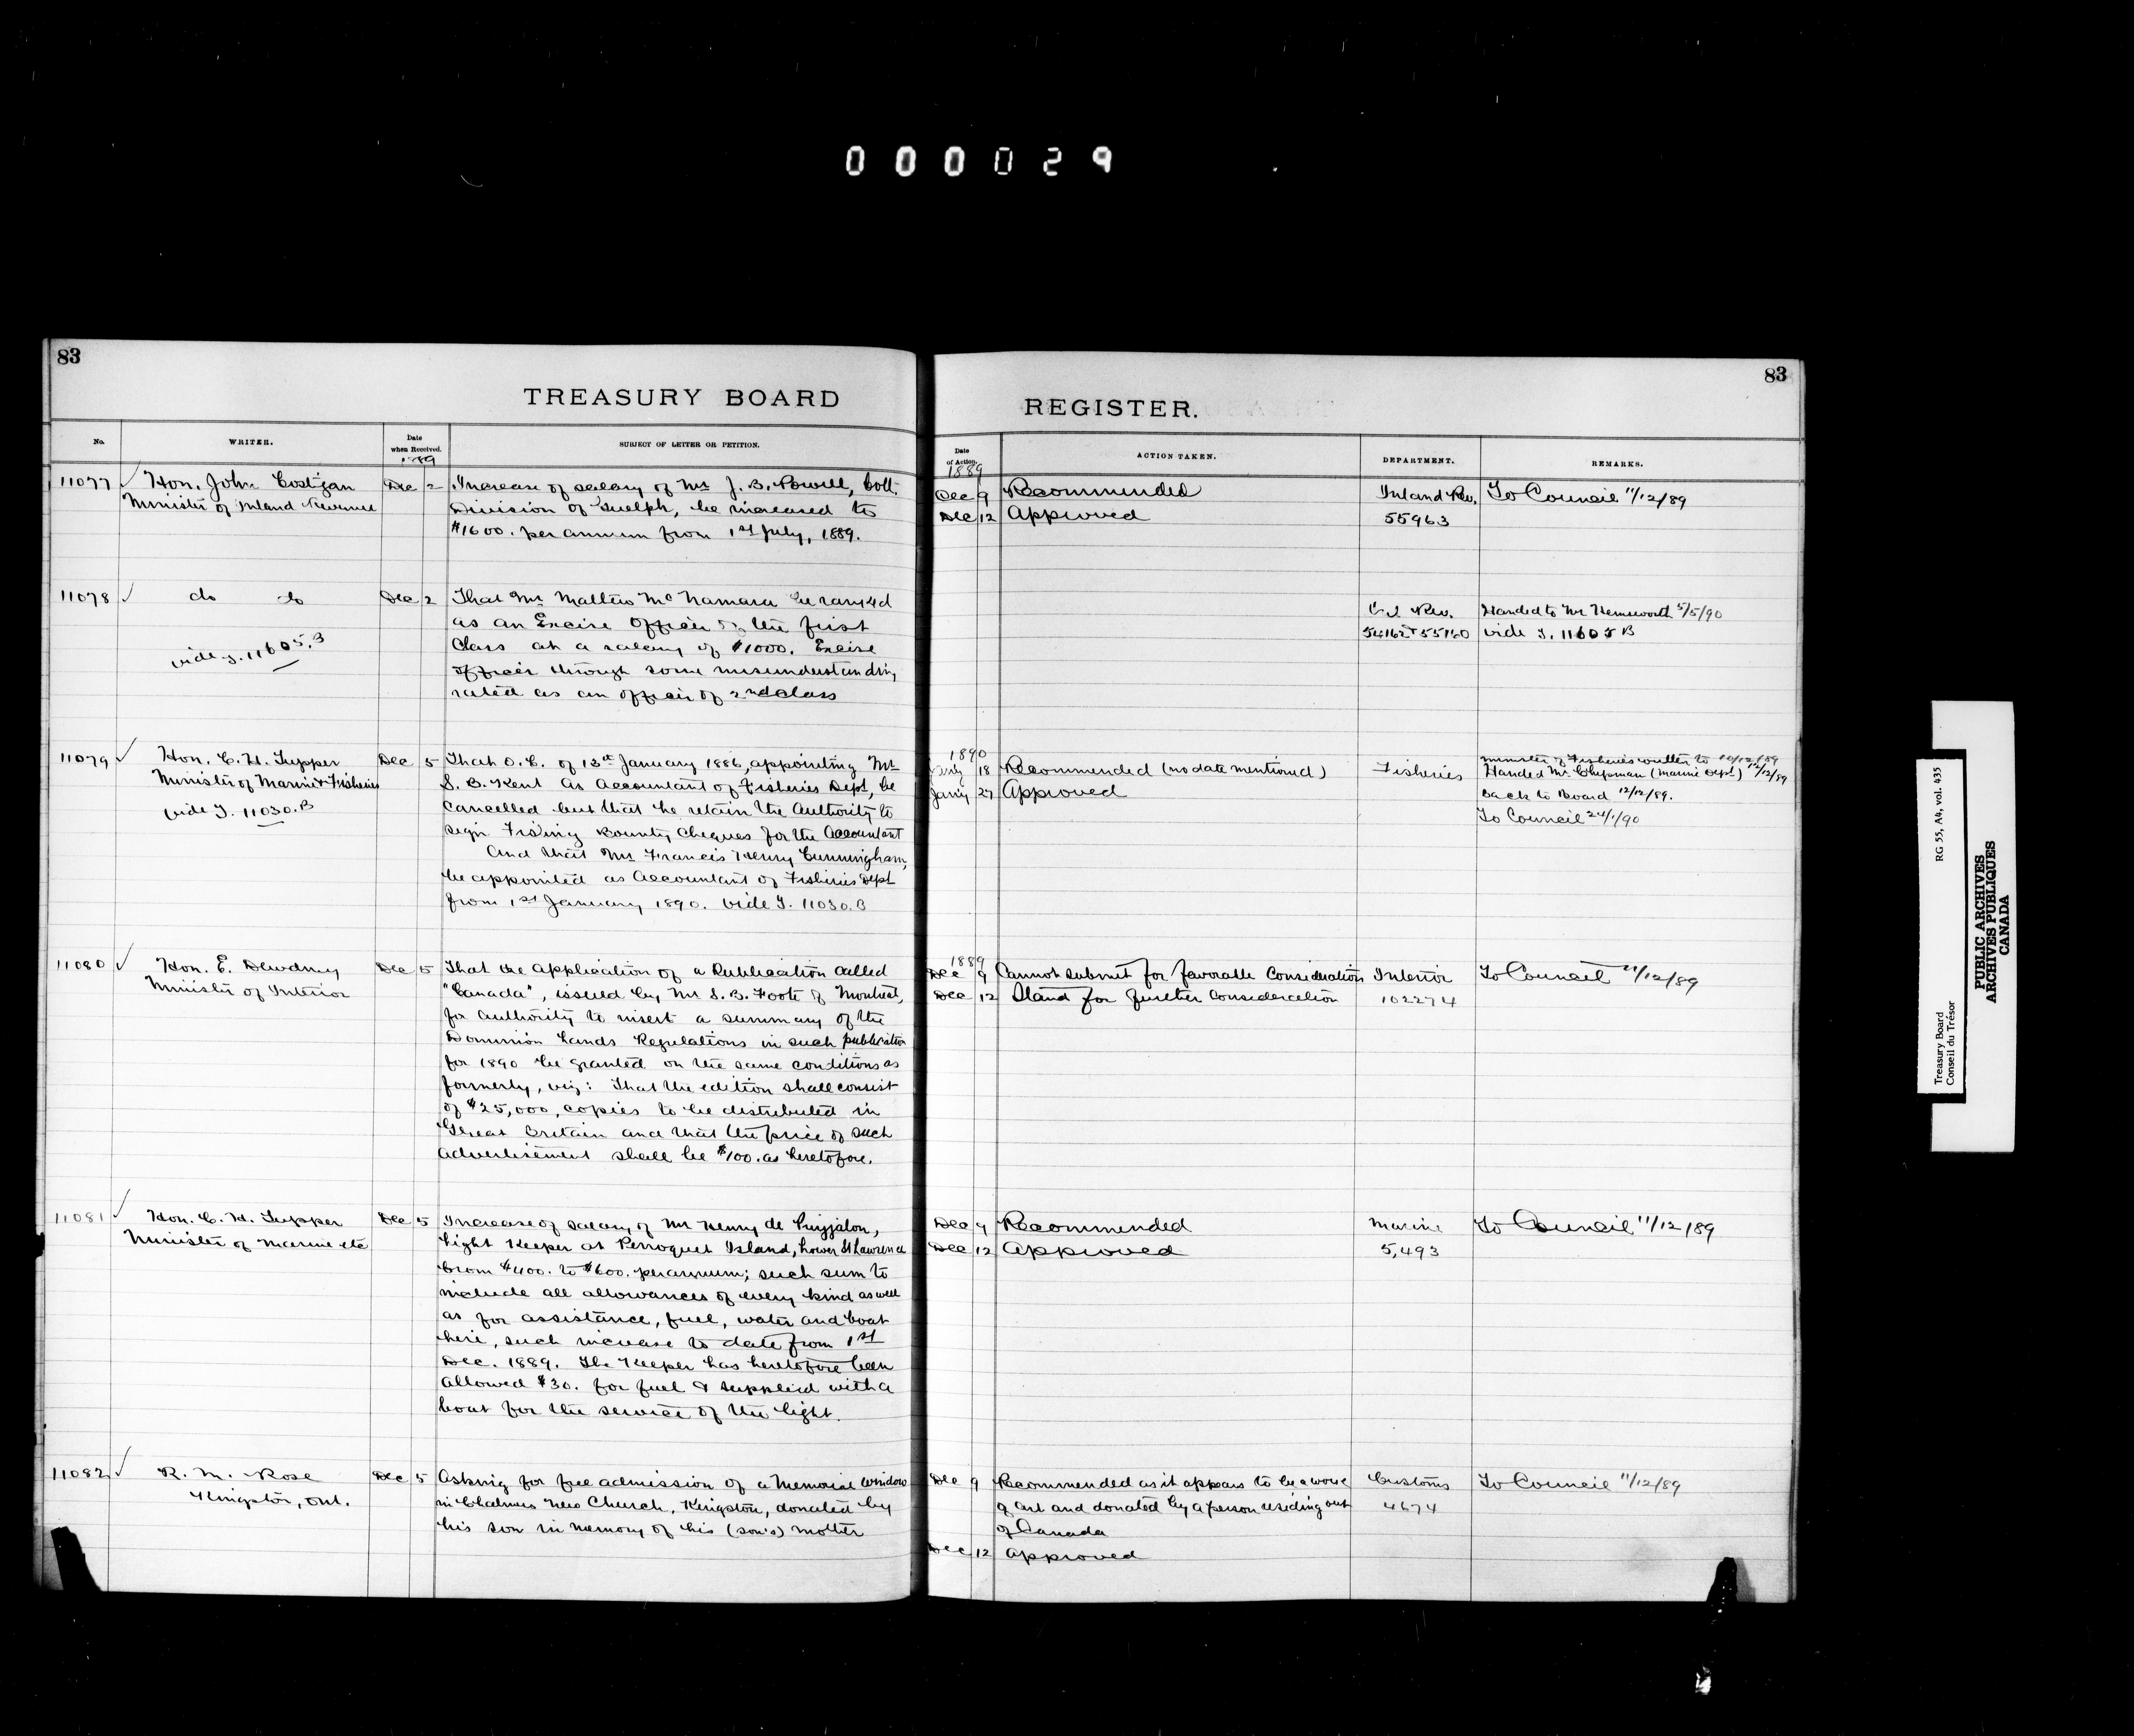 000029
83
TREASURY BOARD
No.
WRITER.
Date
when Received.
SUBJECT OF LETTER OR PETITION.
1889
11077 ✓ Hon. John Costigan
Minister of Inland Revenue
Dec 2
Increase of salary of Mr J. B. Powell, Coll.
Division of Guelph, be increased to
$1600. per annum from 1st July, 1889.
11078 ✓ do do
vide J. 11605.B
Dec 2
That Mr Mattew McNamara be ranked
as an Excise Officer of the first
Class at a salary of $1000. Excise
officer through some misunderstanding
rated as an officer of 2nd class
11079 ✓ Hon. C. H. Tupper
Minister of Marine & Fisheries
vide J. 11030.B
Dec 5
That O.C. of 13th January 1886, appointing Mr
S. B. Kent as Accountant of Fisheries Dept, be
cancelled but that he retain the Authority to
sign Fishing Bounty Cheques for the Accountant
And that Mr Francis Henry Cunningham,
be appointed as Accountant of Fisheries Dept
from 1st January 1890. vide J. 11030.B
11080 ✓ Hon. E. Dewdney
Minister of Interior
Dec 5
That the application of a Publication called
"Canada", issued by Mr S. B. Foote of Montreal,
for authority to insert a summary of the
Dominion Lands Regulations in such publication
for 1890 be granted on the same conditions as
formerly, viz: That the edition shall consist
of $25,000, copies to be distributed in
Great Britain and that the price of such
advertisement shall be $100. as heretofore.
11081 ✓ Hon. C. H. Tupper
Minister of Marine etc
Dec 5
Increase of salary of Mr Henry de Puyjalon,
Light Keeper at Perroquet Island, Lower St Lawrence
from $400. to $600. per annum; such sum to
include all allowances of every kind as well
as for assistance, fuel, water and boat
hire, such increase to date from 1st
Dec. 1889. The Keeper has heretofore been
allowed $30. for fuel & supplied with a
boat for the service of the light.
11082 ✓ R. M. Rose
Kingston, Ont.
Dec 5
Asking for free admission of a Memorial Window
in Chalmers New Church, Kingston, donated by
his son in memory of his (son's) mother
83
REGISTER.
Date
of Action.
ACTION TAKEN.
DEPARTMENT.
REMARKS.
1889
Dec 9 Recommended Inland Rev. To Council 11/12/89
Dec 12 Approved 55963
Rev. Handed to Mr Hemsworth 5/5/90
54162 & 55160 vide J. 11605 B
1890
18 Recommended (no date mentioned) Fisheries
Minister of Fisheries written to 10/12/89
Handed Mr. Chapman (Marine Dept.) 12/12/89
Jany 27 Approved back to Board 12/12/89.
To Council 24/1/90
1889
Dec 9 Cannot submit for favorable Consideration Interior To Council 11/12/89
Dec 12 Stand for further Consideration 102274
Dec 9 Recommended Marine To Council 11/12/89
Dec 12 Approved 5,493
Dec 9 Recommended as it appears to be a work Customs To Council 11/12/89
of art and donated by a person residing out 4674
of Canada
Dec 12 Approved
RG 55, A4, vol. 435
Treasury Board
Conseil du Trésor
PUBLIC ARCHIVES
ARCHIVES PUBLIQUES
CANADA